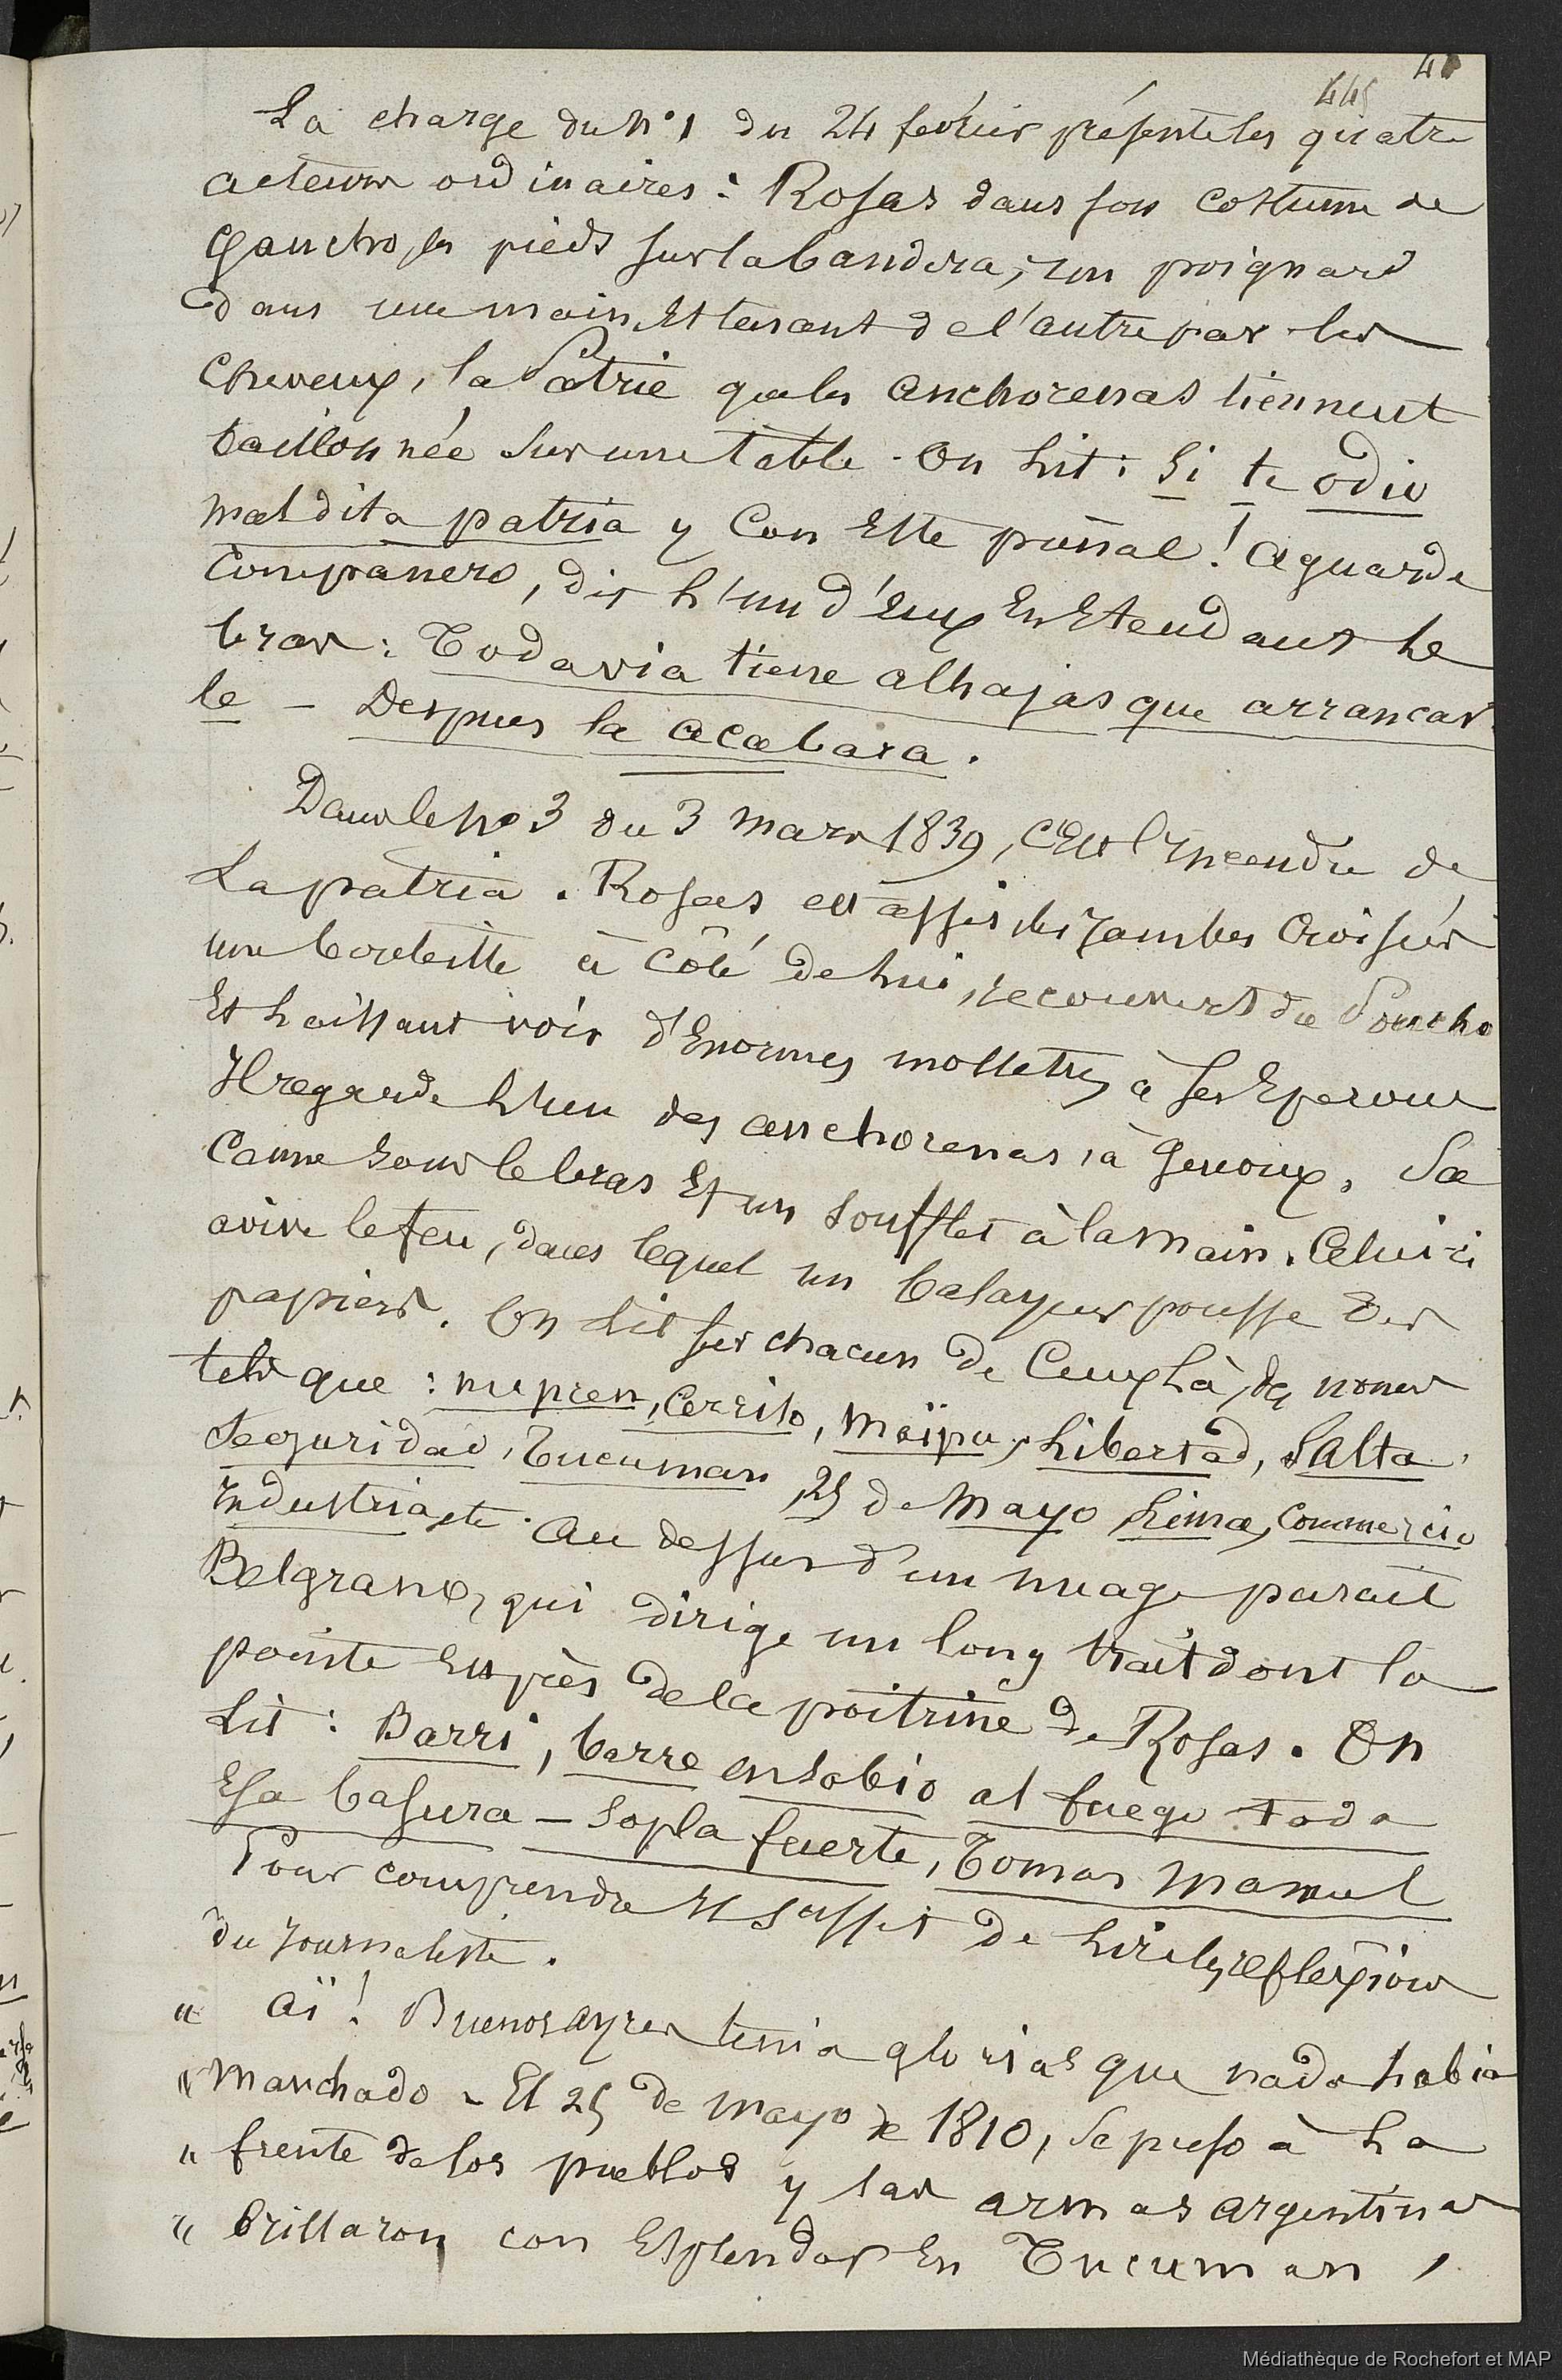 445
La charge du n° 1 du 24 fevrier présente les quatre
acteurs ordinaires : Rosas dans son costume de
Gaucho, les pieds sur la bandera ; un poignard
dans une main, Et tenant de l'autre par les
cheveux, la Patrie que les anchorenas tiennent
baillonnée sur une table. On lit : Si te odio
maldita patria y Con Este puñal ! Aguarde
Compañero, dit L'un d'Eux En Etendant Le
bras : Todavia tiene alhajas que arrancar
le – Despues la acabara.
Dans le no 3 du 3 mars 1839, c'Est l'Incendie de
La patria. Rosas est assis les Jambes Croisées
une bouteille à côté de lui, recouvert du Poncho
Et Laissant voir d'Enormes mollettes à ses Eperons
Il regarde L'un des anchorenas, à genoux, Sa
Canne sous le bras Et un soufflet à la main. Celui-ci
avive le feu, dans lequel un balayeur pousse des
papiers. On Lit sur chacun de Ceux Là, des noms
tels que : Cerrito, Maïpu, Libertad, Salta,
Seguridad, Tucuman, 25 de Mayo Lima, Commercio
Industria, etc. Au dessus d'un nuage parait
Belgrano, qui dirige un long trait dont la
pointe Est près de la poitrine de Rosas. On
Lit : Barri, barre Eusebio al fuego toda
Esa basura – Sopla fuerte, Tomas Manuel
Pour comprendre Il suffit de Lire les réflexions
du Journaliste.
" Aï ! Buenos ayres tenia glorias que nada habia
" Manchado – El 25 de mayo de 1810, Se puso à La
" frente de los pueblos y las armas argentinas
" brillaron con Esplendor En Tucuman,
Médiathèque de Rochefort et MAP